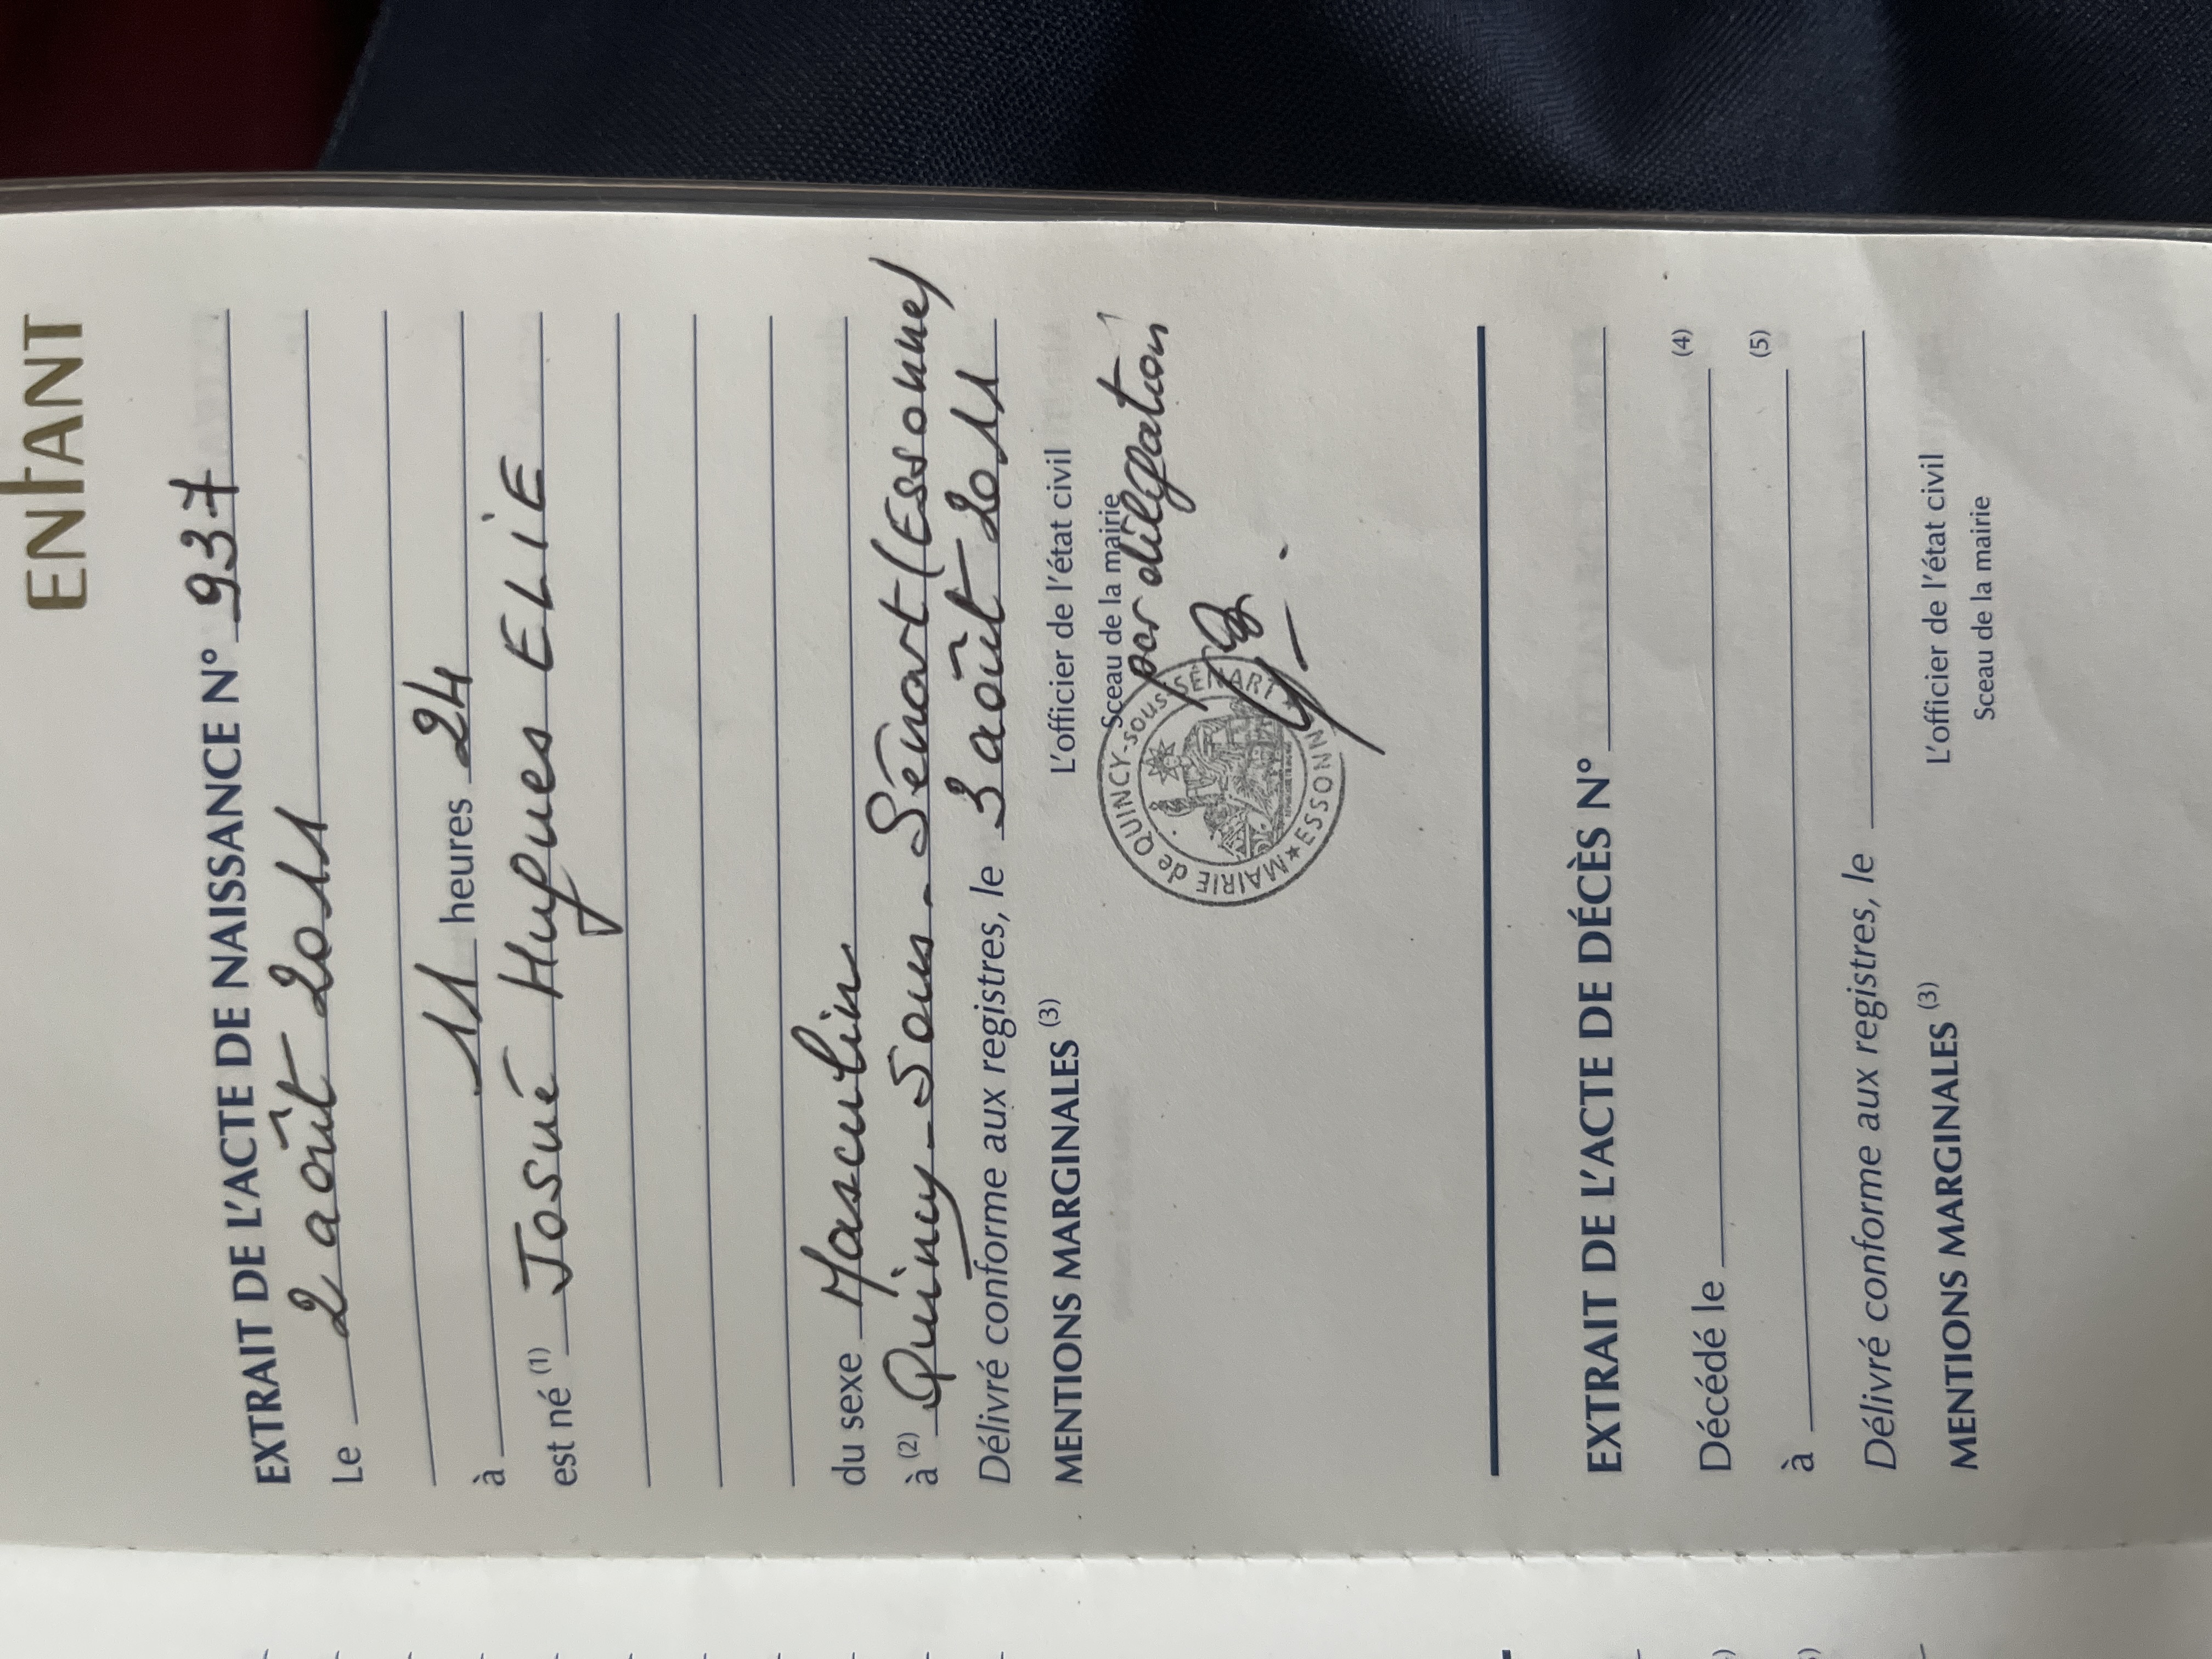 ENFANT
EXTRAIT DE L'ACTE DE NAISSANCE N° 937
Le 2 août 2011
à 11 heures 24
est né (1) Josué Hugues ELIE
du sexe Masculin
à (2) Quincy-Sous-Sénart (Essonne)
Délivré conforme aux registres, le 3 août 2011
MENTIONS MARGINALES (3)
L'officier de l'état civil
Sceau de la mairie
par délégation
MAIRIE de QUINCY-sous-SÉNART
ESSONNE
EXTRAIT DE L'ACTE DE DÉCÈS N°
Décédé le (4)
à (5)
Délivré conforme aux registres, le
MENTIONS MARGINALES (3)
L'officier de l'état civil
Sceau de la mairie